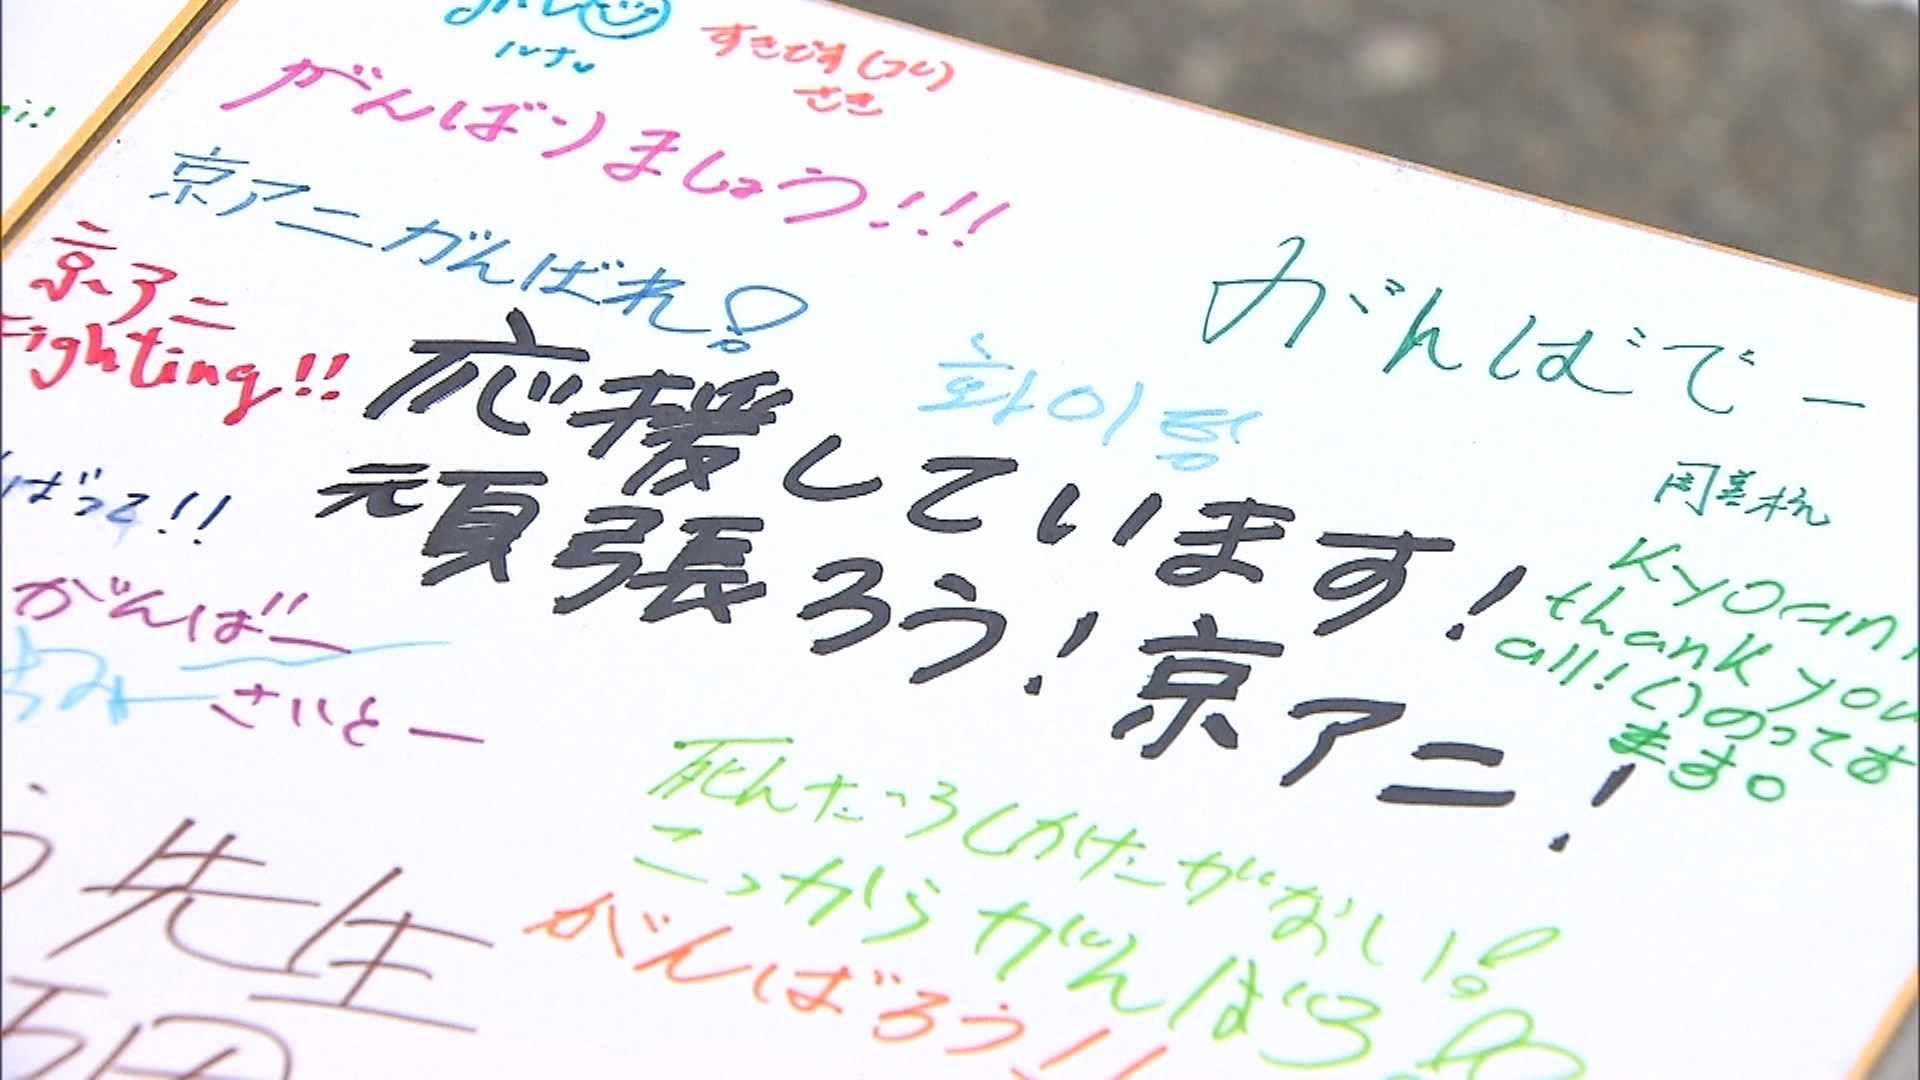 ルナ
すきです(つい)
さき
がんばりましょう!!!
京アニがんばれ!
京アニ
Fighting!!
がんばでー
화이팅
応援しています!
頑張ろう!京アニ!
ばって!!
がんばー
さいとー
Kyoani,
thank you
all! いのってす
ます。
死んだらしかたがない!
こっからがんばろ
がんばろう!!
先生